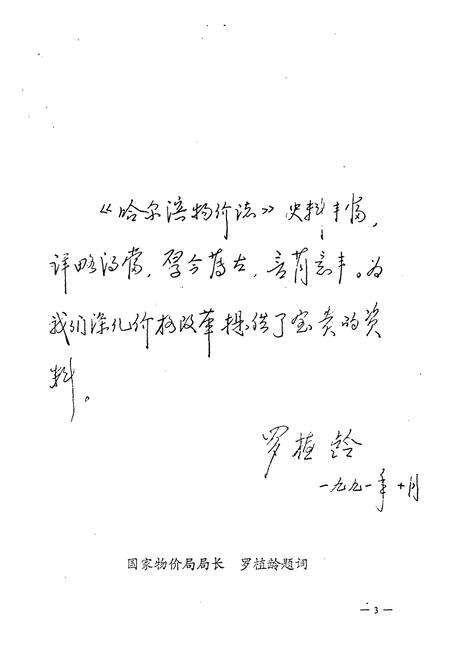 《哈尔滨物价志》史料丰富，
详略得当，厚今薄古，言简意丰。为
我们深化价格改革提供了宝贵的资
料。
罗植龄
一九九一年十月
国家物价局局长 罗植龄题词
— 3 —